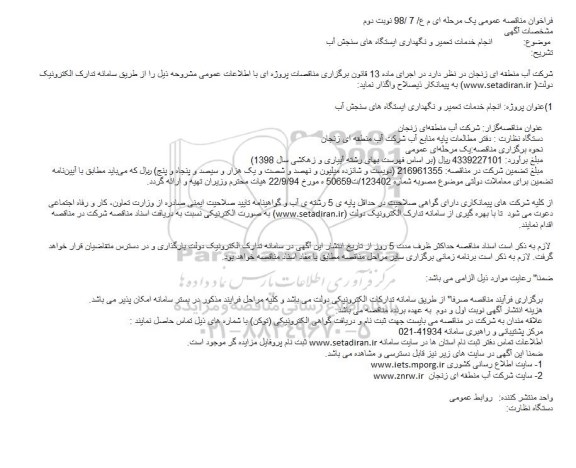 فراخوان مناقصه عمومی یک مرحله ای م ع/ 7 /98 نوبت دوم
مشخصات آگهی
موضوع: انجام خدمات تعمیر و نگهداری ایستگاه های سنجش آب
تشریح:
شرکت آب منطقه ای زنجان در نظر دارد در اجرای ماده 13 قانون برگزاری مناقصات پروژه ای با اطلاعات عمومی مشروحه ذیل را از طریق سامانه تدارک الکترونیک
دولت( www.setadiran.ir) به پیمانکار ذیصلاح واگذار نماید:
1)عنوان پروژه: انجام خدمات تعمیر و نگهداری ایستگاه های سنجش آب
عنوان مناقصه‌گزار: شرکت آب منطقه‌ای زنجان
دستگاه نظارت : دفتر مطالعات پایه منابع آب شرکت آب منطقه ای زنجان
نحوه برگزاری مناقصه:یک مرحله‌ای عمومی
مبلغ برآورد: 4339227101 ریال (بر اساس فهرست بهای رشته آبیاری و زهکشی سال 1398)
مبلغ تضمین شرکت در مناقصه: 216961355 (دویست و شانزده میلیون و نهصد و شصت و یک هزار و سیصد و پنجاه و پنج) ریال که می‌باید مطابق با آیین‌نامه
تضمین برای معاملات دولتی موضوع مصوبه شماره 123402/ت50659ه مورخ 22/9/94 هیات محترم وزیران تهیه و ارائه گردد.
از کلیه شرکت های پیمانکاری دارای گواهی صلاحیت در حداقل پایه ی 5 رشته ی آب و گواهینامه تایید صلاحیت ایمنی صادره از وزارت تعاون، کار و رفاه اجتماعی
دعوت می شود تا با بهره گیری از سامانه تدارک الکترونیک دولت (www.setadiran.ir) به صورت الکترونیکی نسبت به دریافت اسناد مناقصه شرکت در مناقصه
اقدام نمایند.
لازم به ذکر است اسناد مناقصه حداکثر ظرف مدت 5 روز از تاریخ انتشار این آگهی در سامانه تدارک الکترونیک دولت بارگذاری و در دسترس متقاضیان قرار خواهد
گرفت. لازم به ذکر است برنامه زمانی برگزاری سایر مراحل مناقصه مطابق با مفاد اسناد مناقصه خواهد بود.
ضمنا" رعایت موارد ذیل الزامی می باشد:
برگزاری فرآیند مناقصه صرفا" از طریق سامانه تدارکات الکترونیکی دولت می باشد و کلیه مراحل فرایند مذکور در بستر سامانه امکان پذیر می باشد.
هزینه انتشار آگهی نوبت اول و دوم به عهده برنده مناقصه می باشد.
علاقه مندان به شرکت در مناقصه می بایست جهت ثبت نام و دریافت گواهی الکترونیکی (توکن) با شماره های ذیل تماس حاصل نمایند :
مرکز پشتیبانی و راهبری سامانه 41934-021
اطلاعات تماس دفتر ثبت نام استان ها در سایت سامانه www.setadiran.ir ثبت نام پروفایل مزایده گر موجود است.
ضمنا این آگهی در سایت های زیر نیز قابل دسترسی و مشاهده می باشد.
1- سایت اطلاع رسانی کشوری www.iets.mporg.ir
2- سایت شرکت آب منطقه ای زنجان www.znrw.ir
واحد منتشر کننده: روابط عمومی
دستگاه نظارت: